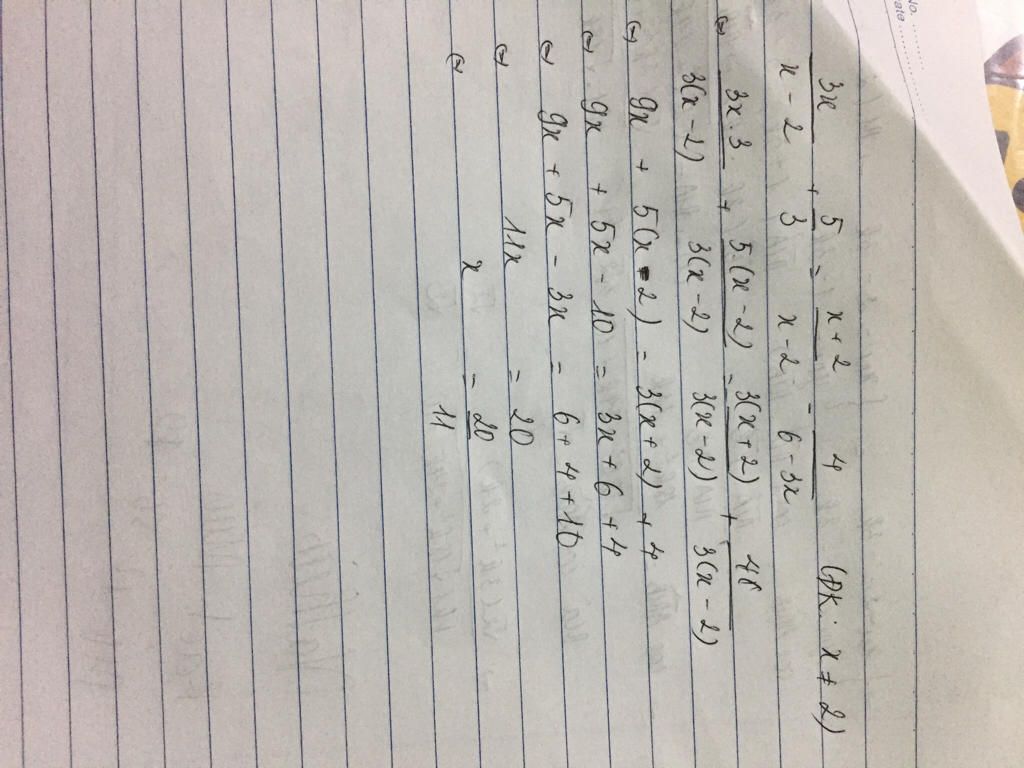 No.
Date
3x/(x - 2) + 5/3 = (x + 2)/(x - 2) - 4/(6 - 3x) (ĐK: x ≠ 2)
⇔ 3x.3/3(x - 2) + 5.(x - 2)/3(x - 2) = 3(x + 2)/3(x - 2) + 4/3(x - 2)
⇔ 9x + 5(x - 2) = 3(x + 2) + 4
⇔ 9x + 5x - 10 = 3x + 6 + 4
⇔ 9x + 5x - 3x = 6 + 4 + 10
⇔ 11x = 20
⇔ x = 20/11